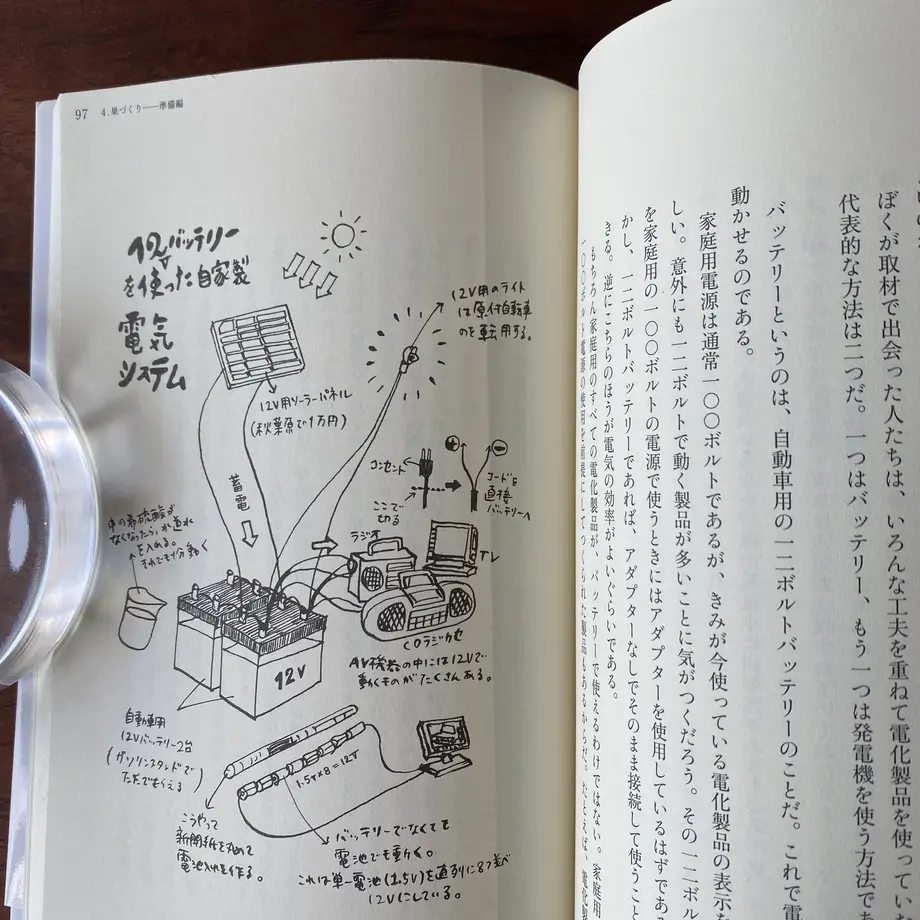 ぼくが取材で出会った人たちは、いろんな工夫を重ねて電化製品を使ってい
代表的な方法は二つだ。一つはバッテリー、もう一つは発電機を使う方法であ
バッテリーというのは、自動車用の一二ボルトバッテリーのことだ。これで電
動かせるのである。
家庭用電源は通常一〇〇ボルトであるが、きみが今使っている電化製品の表示を
しい。意外にも一二ボルトで動く製品が多いことに気がつくだろう。その一二ボル
を家庭用の一〇〇ボルトの電源で使うときにはアダプターを使用しているはずであ
かし、一二ボルトバッテリーであれば、アダプターなしでそのまま接続して使うこと
きる。逆にこちらのほうが電気の効率がよいぐらいである。
もちろん家庭用のすべての電化製品が、バッテリーで使えるわけではない。家庭用
一〇〇ボルト電源の使用を前提にしてつくられた製品もあるからだ。たとえば、電化製
97 4.巣づくり──準備編
12Vバッテリー
を使った自家製
電気
システム
12V用のライト
は原付自転車
のを転用する。
12V用ソーラーパネル
(秋葉原で1万円)
蓄電
コンセント
ここで
切る
コードを
直接
バッテリーへ
中の希硫酸が
なくなったら、水道水
を入れる。
それでも十分動く
ラジオ
TV
CDラジカセ
AV機器の中には12Vで
動くものがたくさんある。
12V
自動車用
12Vバッテリー2台
(ガソリンスタンドで
ただでもらえる)
1.5V×8=12V
こうやって
新聞紙を丸めて
電池入れを作る。
バッテリーでなくても
電池でも動く。
これは単一電池(1.5V)を直列に8つ並べ
12Vにしている。